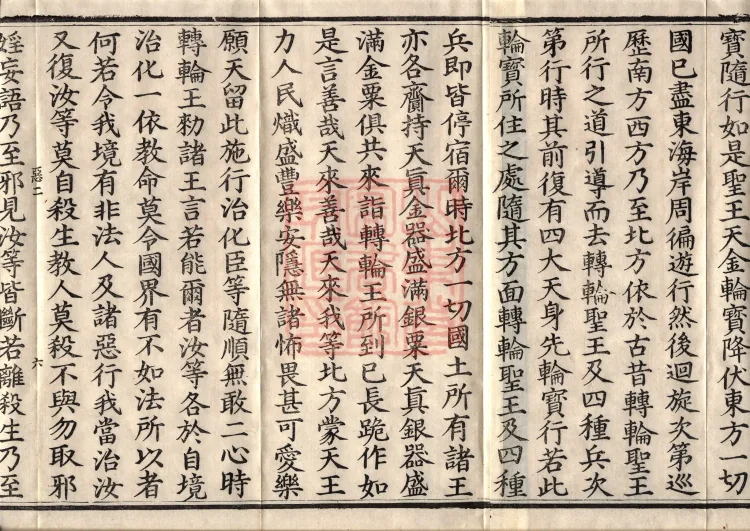 寶隨行如是聖王天金輪寶降伏東方一切
國已盡東海岸周徧遊行然後迴旋次第巡
歷南方西方乃至北方依於古昔轉輪聖王
所行之道引導而去轉輪聖王及四種兵次
第行時其前復有四大天身先輪寶行若此
輪寶所住之處隨其方面轉輪聖王及四種
兵即皆停宿爾時北方一切國土所有諸王
亦各齎持天眞金器盛滿銀粟天眞銀器盛
滿金粟俱共來詣轉輪王所到已長跪作如
是言善哉天來善哉天來我等北方蒙天王
力人民熾盛豐樂安隱無諸怖畏甚可愛樂
願天留此施行治化臣等隨順無敢二心時
轉輪王勑諸王言若能爾者汝等各於自境
治化一依教命莫令國界有不如法所以者
何若令我境有非法人及諸惡行我當治汝
又復汝等莫自殺生教人莫殺不與勿取邪
惡二 六
婬妄語乃至邪見汝等皆斷若離殺生乃至